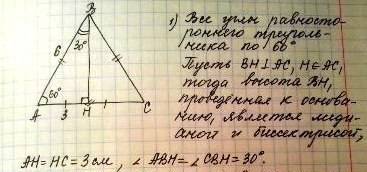 B
30°
6
60°
A
3
H
C
1) Все углы равносто-
роннего треуголь-
ника по 60°
Пусть BH⊥AC, H∈AC,
тогда высота BH,
проведённая к основа-
нию, является меди-
аной и биссектрисой,
AH=HC=3см, ∠ABH=∠CBH=30°.